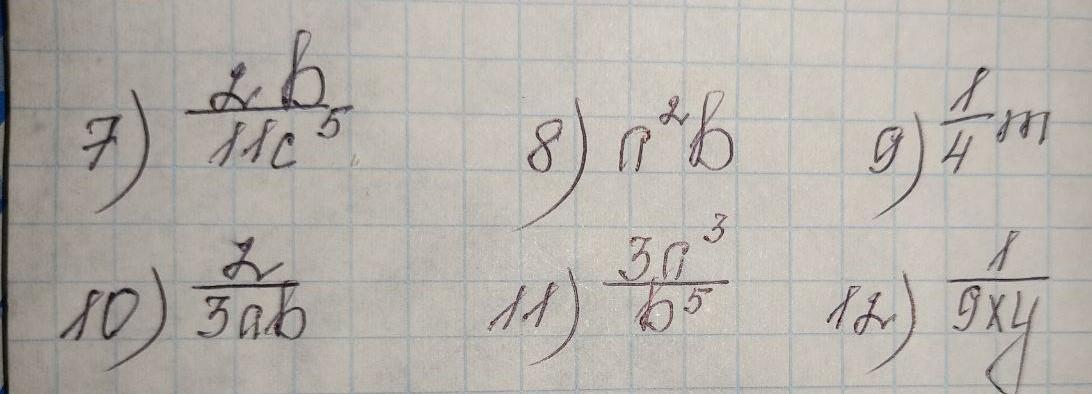 7) 2b/11c⁵ 8) n²b 9) 1/4 m
10) 2/3ab 11) 3n³/b⁵ 12) 1/9xy